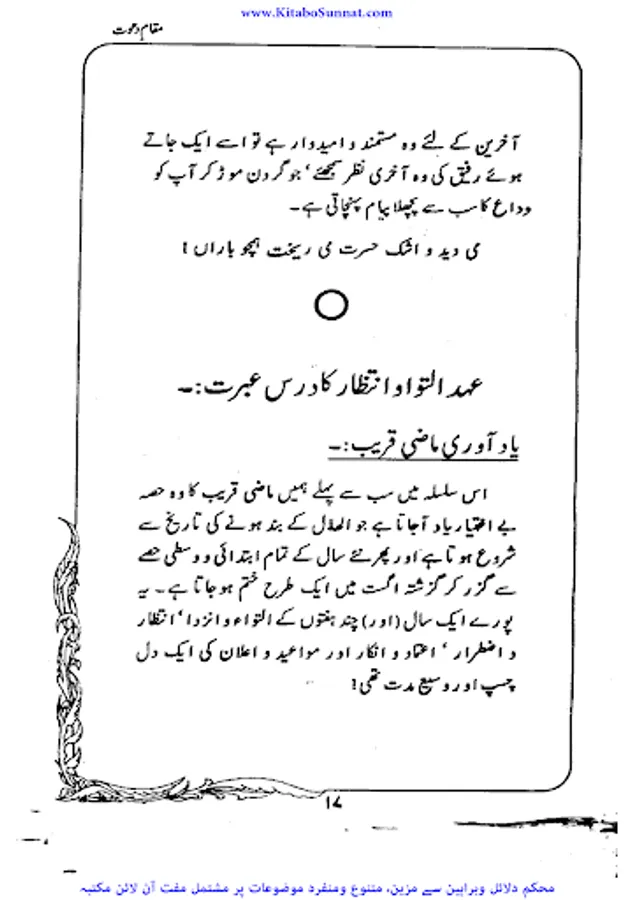 www.KitaboSunnat.com
مقام دعوت
آخرین کے لئے وہ مستمند و امیدوار ہے تو اسے ایک جاتے
ہوئے رفیق کی وہ آخری نظر سمجھئے ‘ جو گردن موڑ کر آپ کو
وداع کا سب سے پچھلا پیام پہنچاتی ہے۔
می دید و اشک حسرت می ریخت ہمچو باراں !
عہد التوا و انتظار کا درس عبرت :۔
یاد آوری ماضی قریب :۔
اس سلسلہ میں سب سے پہلے ہمیں ماضی قریب کا وہ حصہ
بے اختیار یاد آجاتا ہے جو الہلال کے بند ہونے کی تاریخ سے
شروع ہوتا ہے اور پھر نئے سال کے تمام ابتدائی و وسطی حصے
سے گزر کر گزشتہ اگست میں ایک طرح ختم ہو جاتا ہے۔ یہ
پورے ایک سال (اور) چند ہفتوں کے التواء و انزوا ‘ انتظار
و اضطرار ‘ اعتماد و انکار اور مواعید و اعلان کی ایک دل
چسپ اور وسیع مدت تھی !
۱۷
محکم دلائل وبراہین سے مزین، متنوع ومنفرد موضوعات پر مشتمل مفت آن لائن مکتبہ